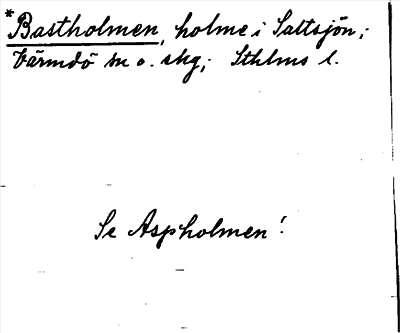 *Bastholmen, holme i Saltsjön;
Värmdö sn o. skg; Sthlms l.
Se Aspholmen!